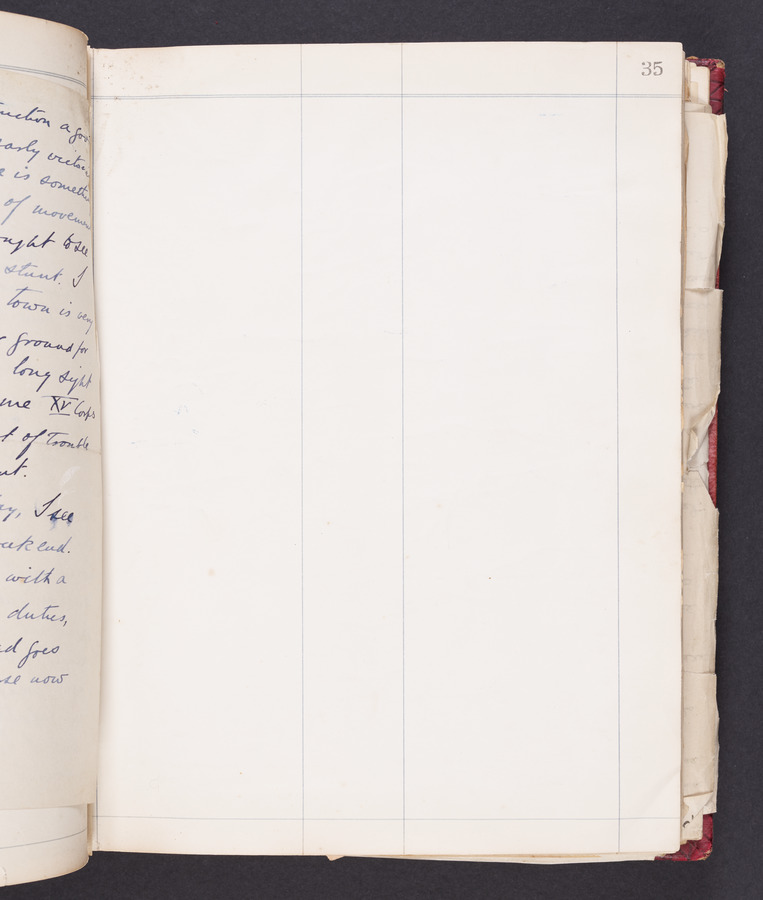 35
uction a goo
early victor
e is somethi
of movemen
ought to see
stunt. I
town is very
ground for
long sight
me XV Corps
t of trouble
ut.
ay, I see
eek end.
with a
duties,
d goes
se now